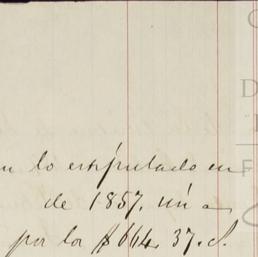 n lo estipulado en
de 1857. un a
por los $664. 37. c.